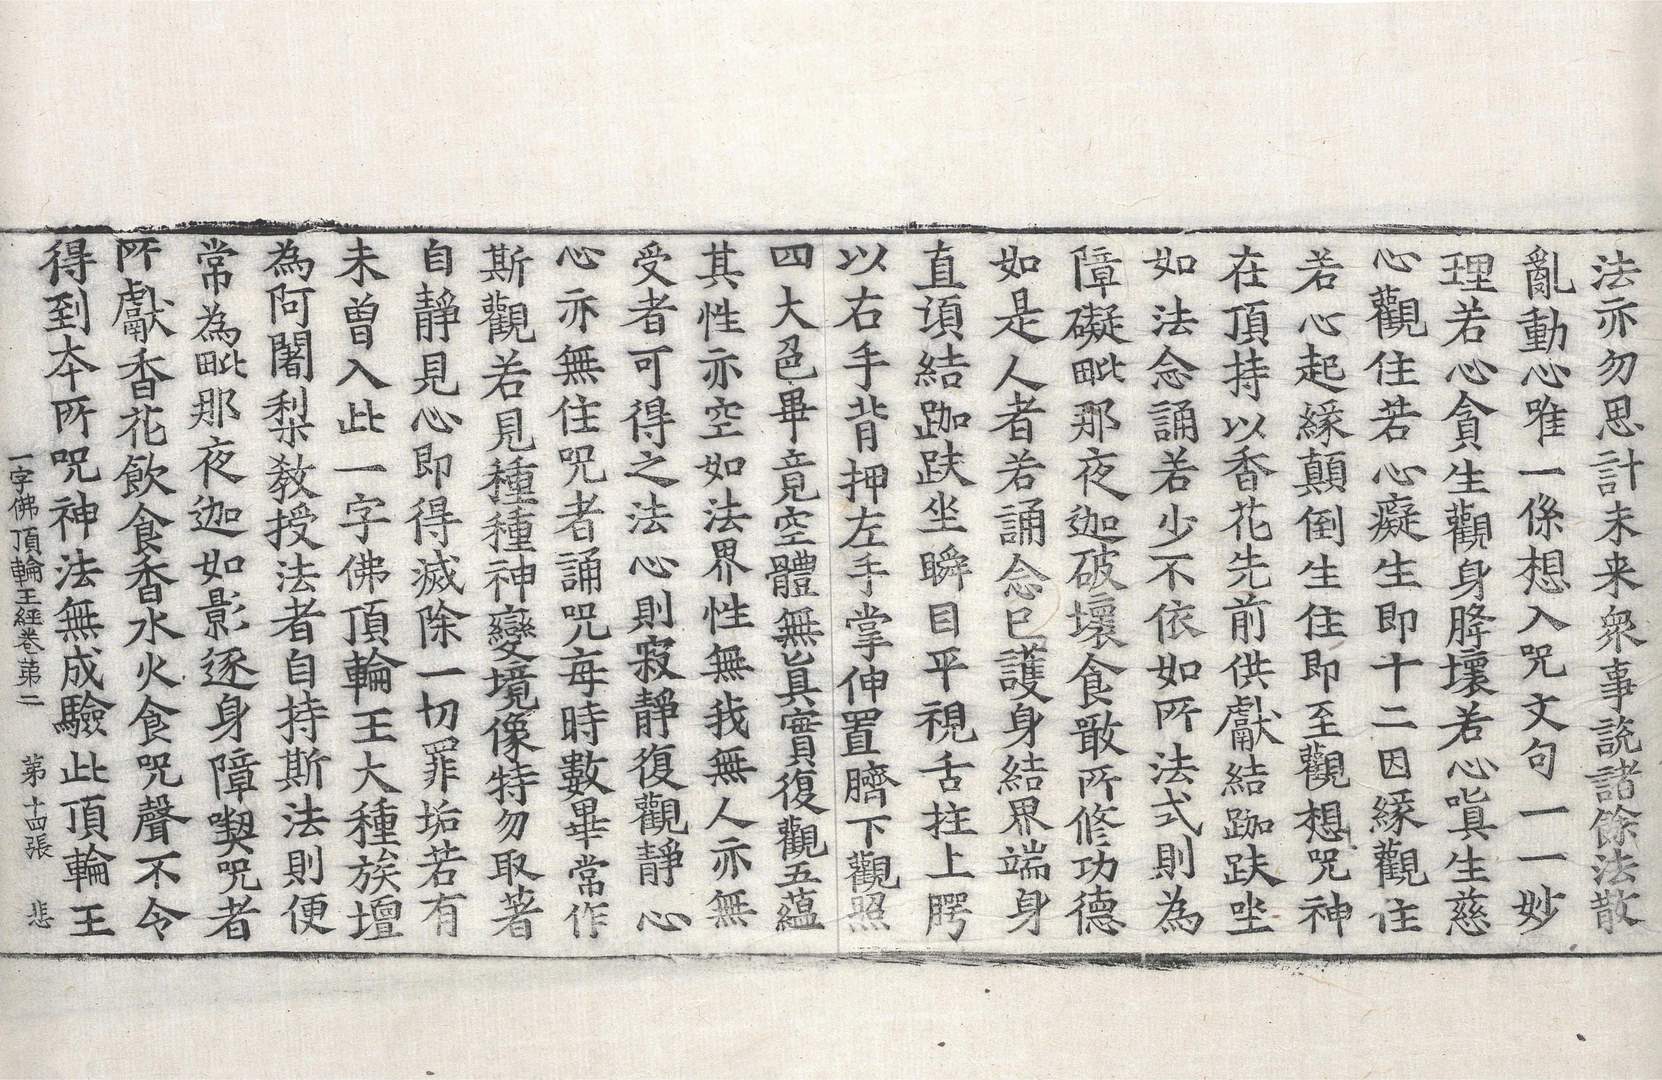 法亦勿思計未来衆事說諸餘法散
亂動心唯一係想入呪文句一一妙
理若心貪生觀身胮壞若心嗔生慈
心觀住若心癡生即十二因緣觀住
若心起緣顛倒生住即至觀想呪神
在頂持以香花先前供獻結跏趺坐
如法念誦若少不依如所法式則為
障礙毗那夜迦破壞食噉所修功德
如是人者若誦念已護身結界端身
直項結跏趺坐瞬目平視舌拄上腭
以右手背押左手掌伸置臍下觀照
四大色畢竟空體無眞實復觀五蘊
其性亦空如法界性無我無人亦無
受者可得之法心則寂靜復觀靜心
心亦無住呪者誦呪每時數畢當作
斯觀若見種種神變境像特勿取著
自靜見心即得滅除一切罪垢若有
未曾入此一字佛頂輪王大種族壇
為阿闍梨教授法者自持斯法則便
常為毗那夜迦如影逐身障㗫呪者
所獻香花飲食香水火食呪聲不令
得到本所呪神法無成驗此頂輪王
一字佛頂輪王經卷第二 第十四張 悲